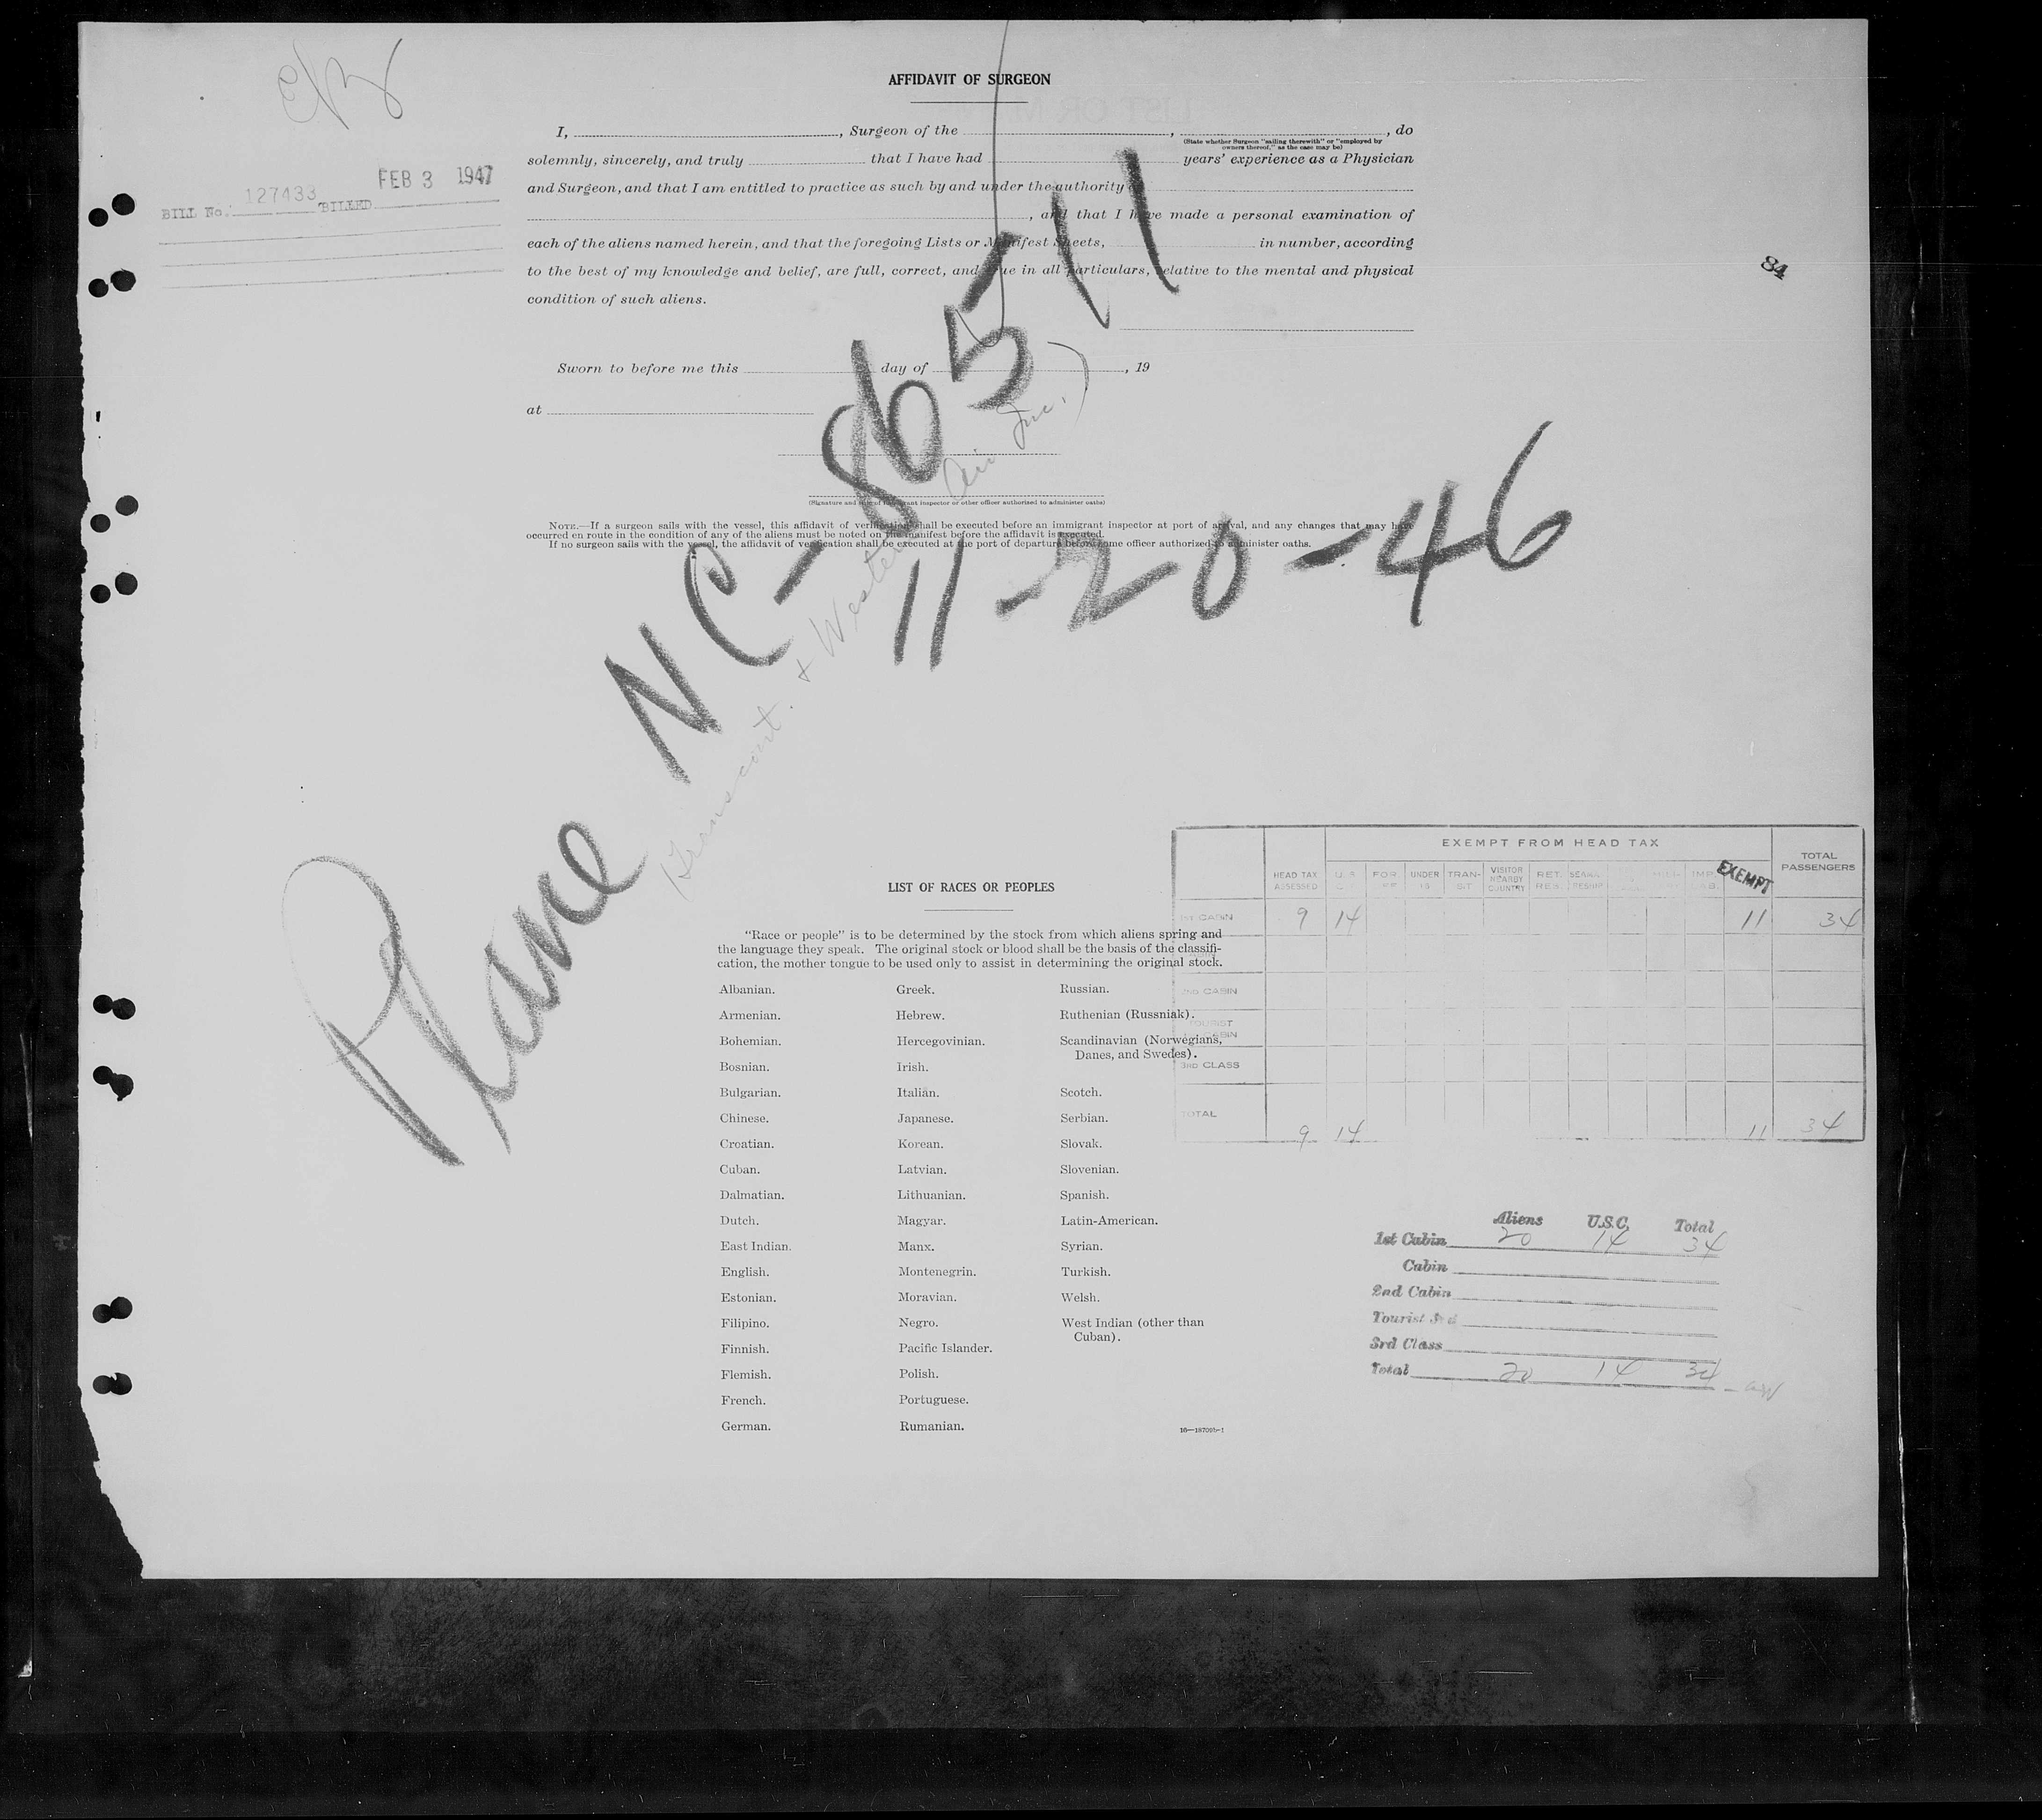 AFFIDAVIT OF SURGEON
I, , Surgeon of the , , do
(State whether Surgeon "sailing therewith" or "employed by
owners thereof," as the case may be)
solemnly, sincerely, and truly that I have had years' experience as a Physician
and Surgeon, and that I am entitled to practice as such by and under the authority
, and that I have made a personal examination of
each of the aliens named herein, and that the foregoing Lists or Manifest Sheets, in number, according
to the best of my knowledge and belief, are full, correct, and true in all particulars, relative to the mental and physical
condition of such aliens.
BILL No. 127433 BILLED FEB 3 1947
84
Sworn to before me this day of , 19
at
(Signature and title of immigrant inspector or other officer authorized to administer oaths)
NOTE.—If a surgeon sails with the vessel, this affidavit of verification shall be executed before an immigrant inspector at port of arrival, and any changes that may have
occurred en route in the condition of any of the aliens must be noted on the manifest before the affidavit is executed.
If no surgeon sails with the vessel, the affidavit of verification shall be executed at the port of departure before some officer authorized to administer oaths.
Plane NC-86511
11-20-46
(Transcont. & Western Air Inc.)
LIST OF RACES OR PEOPLES
"Race or people" is to be determined by the stock from which aliens spring and
the language they speak. The original stock or blood shall be the basis of the classifi-
cation, the mother tongue to be used only to assist in determining the original stock.
Albanian. Greek. Russian.
Armenian. Hebrew. Ruthenian (Russniak).
Bohemian. Hercegovinian. Scandinavian (Norwegians,
Danes, and Swedes).
Bosnian. Irish.
Bulgarian. Italian. Scotch.
Chinese. Japanese. Serbian.
Croatian. Korean. Slovak.
Cuban. Latvian. Slovenian.
Dalmatian. Lithuanian. Spanish.
Dutch. Magyar. Latin-American.
East Indian. Manx. Syrian.
English. Montenegrin. Turkish.
Estonian. Moravian. Welsh.
Filipino. Negro. West Indian (other than
Cuban).
Finnish. Pacific Islander.
Flemish. Polish.
French. Portuguese.
German. Rumanian.
16—18709b-1
EXEMPT FROM HEAD TAX
HEAD TAX ASSESSED U.S. FOR UNDER 16 TRAN-SIT VISITOR NEARBY COUNTRY RET. RES. EXEMPT TOTAL PASSENGERS
1ST CABIN 9 14 11 34
2ND CABIN
TOURIST
CABIN
3RD CLASS
TOTAL 9 14 11 34
Aliens U.S.C. Total
1st Cabin 20 14 34
Cabin
2nd Cabin
Tourist 3rd
3rd Class
Total 20 14 34